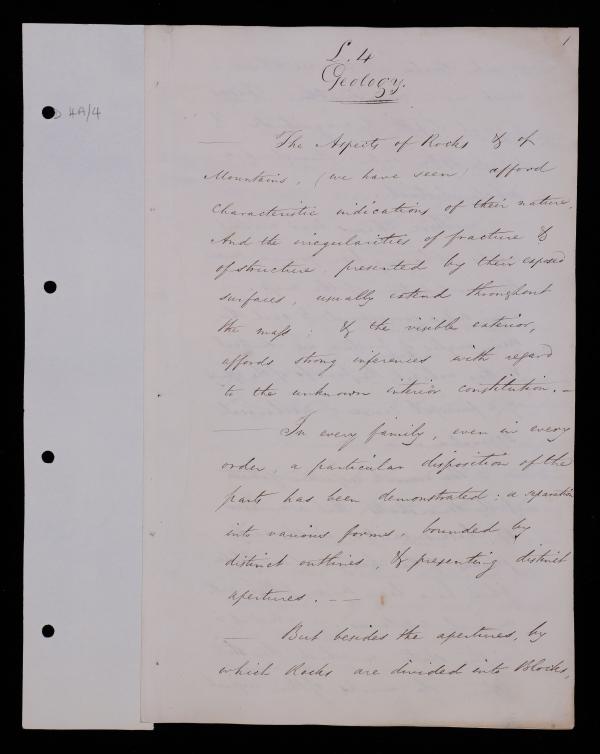 1
L. 4
Geology.
D 4A/4
The Aspects of Rocks & of
Mountains, (we have seen) afford
Characteristic indications of their nature,
And the irregularities of fracture &
of structure, presented by their exposed
surfaces, usually extend throughout
the mass : & the visible exterior,
affords strong inferences with regard
to the unknown interior constitution. —
In every family, even in every
order, a particular disposition of the
parts has been demonstrated : a separation
into various forms, bounded by
distinct outlines, & presenting distinct
apertures. — —
But besides the apertures, by
which Rocks are divided into Blocks,